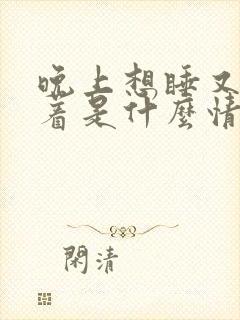 晚上想睡又
着是什麼情
閑清